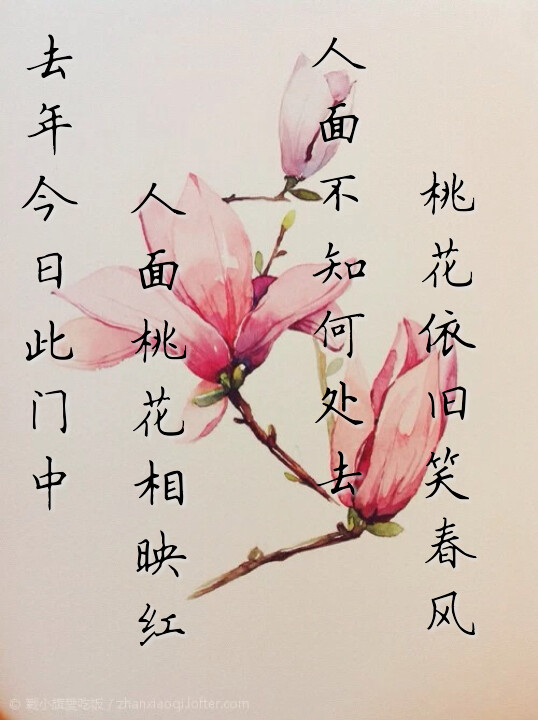 去年今日此门中
人面桃花相映红
人面不知何处去
桃花依旧笑春风
© 颖小旗爱吃饭 / zhanxiaoqi.lofter.com